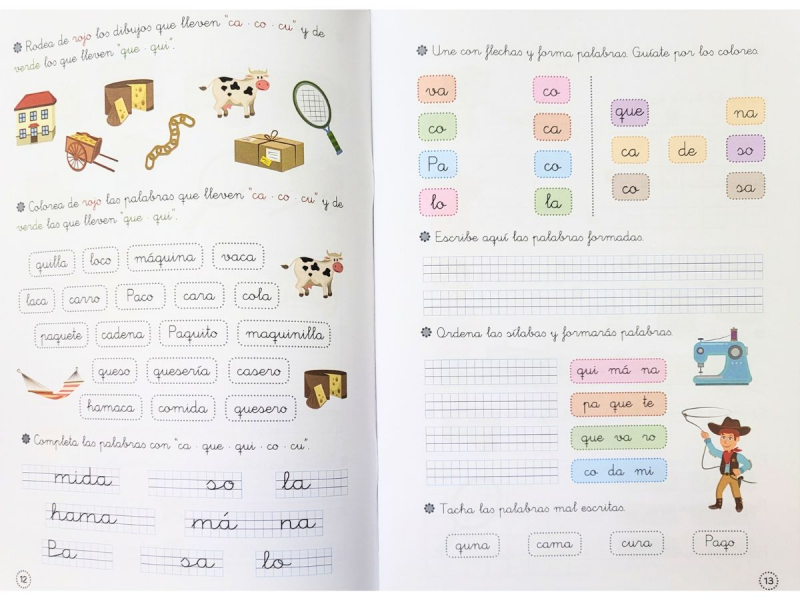 Rodea de rojo los dibujos que lleven "ca · co · cu" y de
verde los que lleven "que · qui".
Colorea de rojo las palabras que lleven "ca · co · cu" y de
verde las que lleven "que · qui".
quilla loco máquina vaca
laca carro Paco cara cola
paquete cadena Paquito maquinilla
queso quesería casero
hamaca comida quesero
Completa las palabras con "ca · que · qui · co · cu".
mida so la
hama má na
Pa sa lo
12
Une con flechas y forma palabras. Guíate por los colores.
va co
co ca
Pa co
lo la
que na
ca de so
co sa
Escribe aquí las palabras formadas.
Ordena las sílabas y formarás palabras.
qui má na
pa que te
que va ro
co da mi
Tacha las palabras mal escritas.
quna cama cura Paqo
13